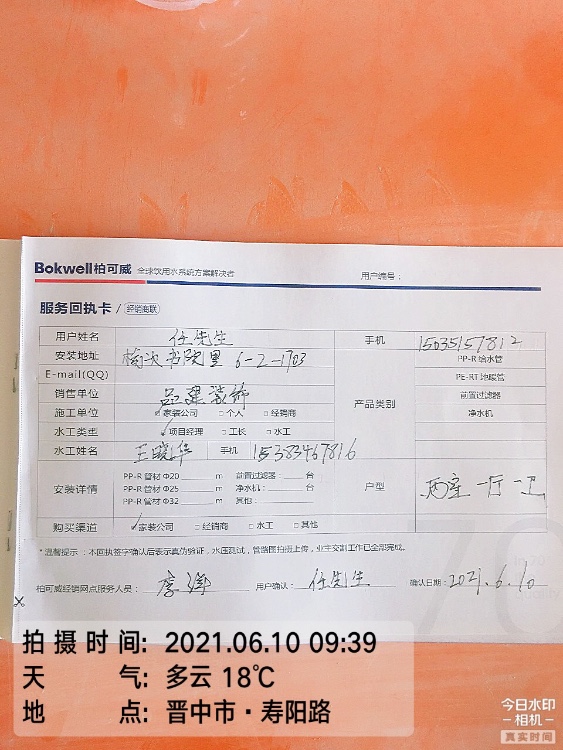 Bokwell柏可威 全球饮用水系统方案解决者 用户编号：
服务回执卡 / 经销商联
用户姓名 任先生 手机 15035157812
安装地址 榆次书院里 6-2-1703 PP-R 给水管
E-mail(QQ) PE-RT 地暖管
销售单位 品建装饰 产品类别 前置过滤器
施工单位 ☑家装公司 □个人 □经销商 净水机
水工类型 ☑项目经理 □工长 □水工
水工姓名 王晓华 手机 15383467816
安装详情 PP-R 管材 Φ20 ____ m 前置过滤器：____ 台 户型 两室一厅一卫
PP-R 管材 Φ25 ____ m 净水机：____ 台
PP-R 管材 Φ32 ____ m 其他：
购买渠道 ☑家装公司 □经销商 □水工 □其他
*温馨提示：本回执签字确认后表示真伪验证，水压测试，管路图拍摄上传，业主交割工作已全部完成。
柏可威经销网点服务人员： 用户确认：任先生 确认日期：2021.6.10
拍摄时间: 2021.06.10 09:39
天气: 多云 18℃
地点: 晋中市·寿阳路
今日水印
-相机-
真实时间